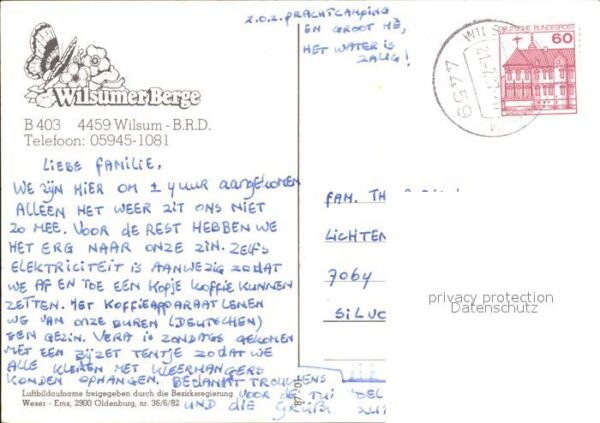 2.0.2. PRACHTCAMPING
EN GROOT HÈ,
HET WATER IS
ZALIG!
DEUTSCHE BUNDESPOST
60
WILS
4459
Wilsumer Berge
B 403 4459 Wilsum - B.R.D.
Telefoon: 05945-1081
LIEBE FAMILIE,
WE ZIJN HIER OM 1 UUR AANGEKOMEN
ALLEEN HET WEER ZIT ONS NIET
ZO MEE. VOOR DE REST HEBBEN WE
HET ERG NAAR ONZE ZIN. ZELFS
ELEKTRICITEIT IS AANWEZIG ZODAT
WE AF EN TOE EEN KOPJE KOFFIE KUNNEN
ZETTEN. HET KOFFIEAPPARAAT LENEN
WE VAN ONZE BUREN (DEUTSCHEN)
EEN GEZIN. VERA IS ZONDAGS GEKOMEN
MET EEN BIJZET TENTJE ZODAT WE
ALLE KLEREN MET KLEERHANGERS
KONDEN OPHANGEN. BEDANKT TROUWENS
VOOR DE
UND DIE GRÜßE
FAM. TH
LICHTEN
7064
privacy protection
Datenschutz
Luftbildaufname freigegeben durch die Bezirksregierung
Weser - Ems, 2900 Oldenburg, nr. 36/6/82